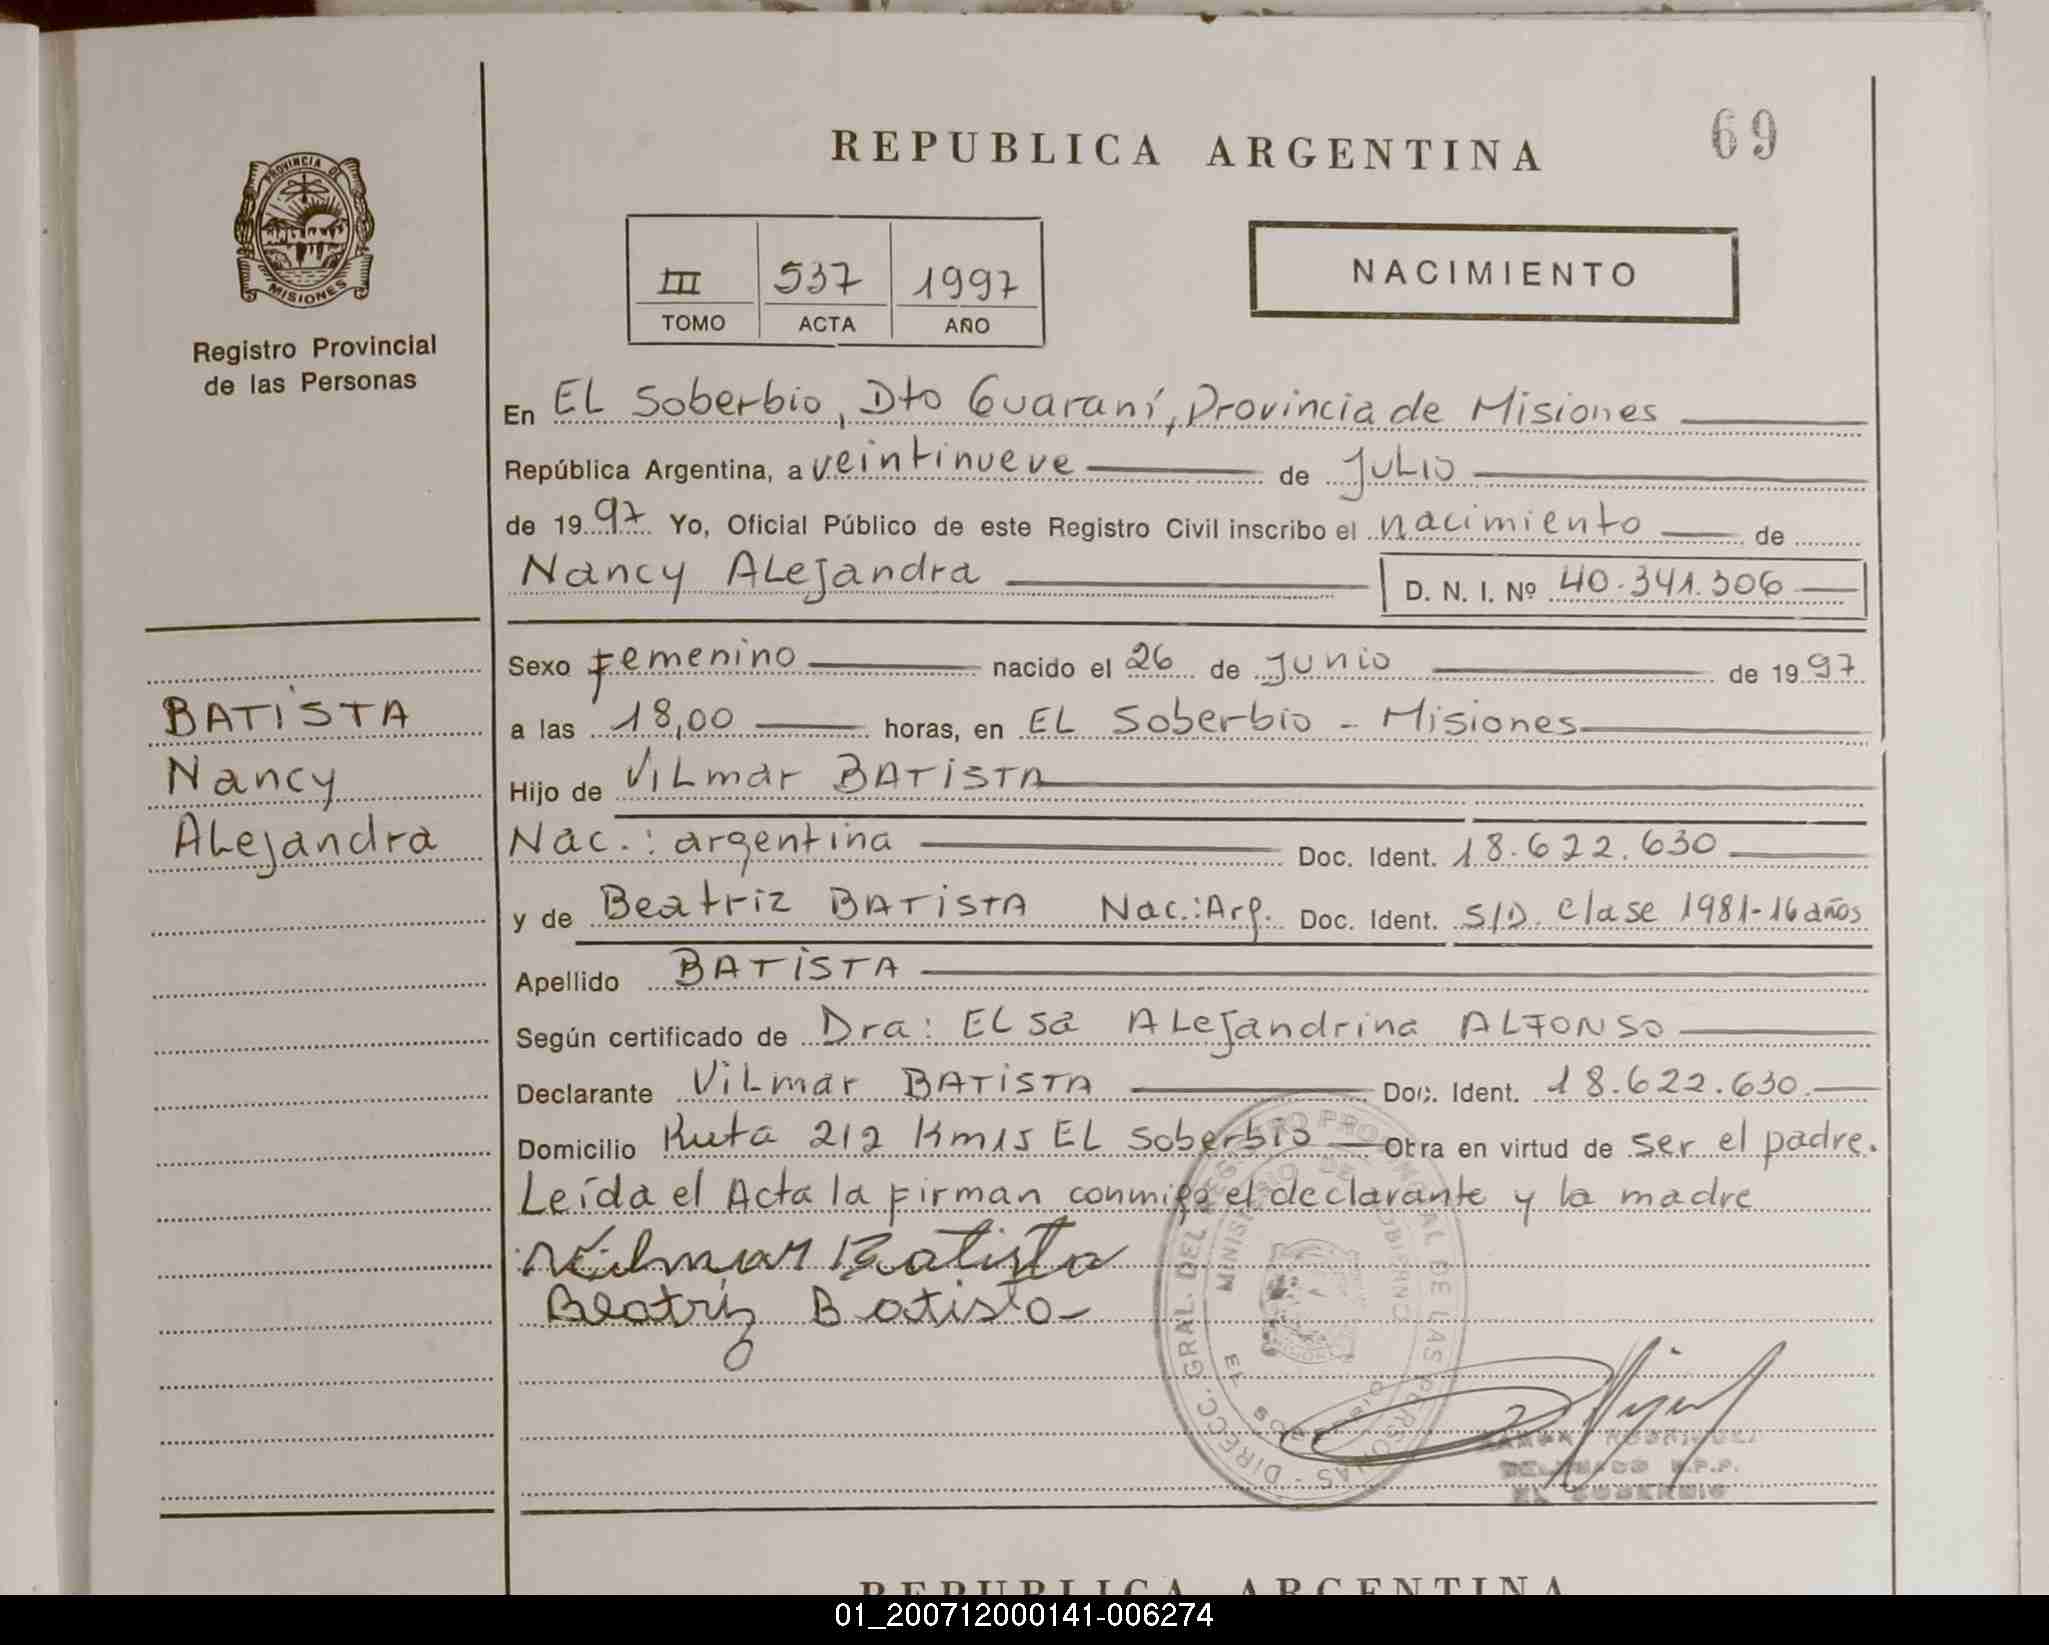 REPUBLICA ARGENTINA
69
PROVINCIA DE
MISIONES
Registro Provincial
de las Personas
III 537 1997
TOMO ACTA AÑO
NACIMIENTO
En EL Soberbio, Dto Guaraní, Provincia de Misiones
República Argentina, a veintinueve de Julio
de 1997 Yo, Oficial Público de este Registro Civil inscribo el nacimiento de
Nancy Alejandra D. N. I. Nº 40.341.306
Sexo Femenino nacido el 26 de Junio de 1997
a las 18,00 horas, en EL Soberbio - Misiones
Hijo de Vilmar BATISTA
Nac.: argentina Doc. Ident. 18.622.630
y de Beatriz BATISTA Nac.: Arg. Doc. Ident. S/D. Clase 1981-16 años
Apellido BATISTA
Según certificado de Dra: ELsa ALejandrina ALFONSO
Declarante Vilmar BATISTA Doc. Ident. 18.622.630.
Domicilio Ruta 212 Km 15 EL Soberbio Obra en virtud de ser el padre.
Leída el Acta la firman conmigo el declarante y la madre
Vilmar Batista
Beatriz Batista
BATISTA
Nancy
Alejandra
DIRECC. GRAL. DEL REGISTRO PROVINCIAL DE LAS PERSONAS
MINISTERIO DE GOBIERNO
EL SOBERBIO
RODRIGUEZ
DELEGADO R.P.P.
EL SOBERBIO
REPUBLICA ARGENTINA
01_200712000141-006274